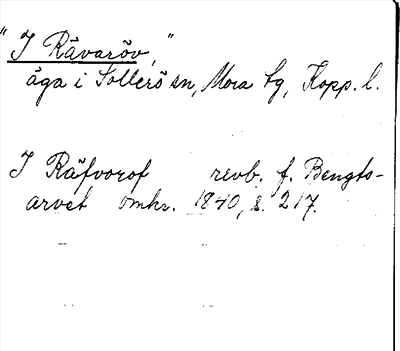 "I Råvaröv,"
äga i Sollerö sn, Mora tg, Kopp. l.
I Råfvorof revb. f. Bengts-
arvet omkr. 1840, s. 217.